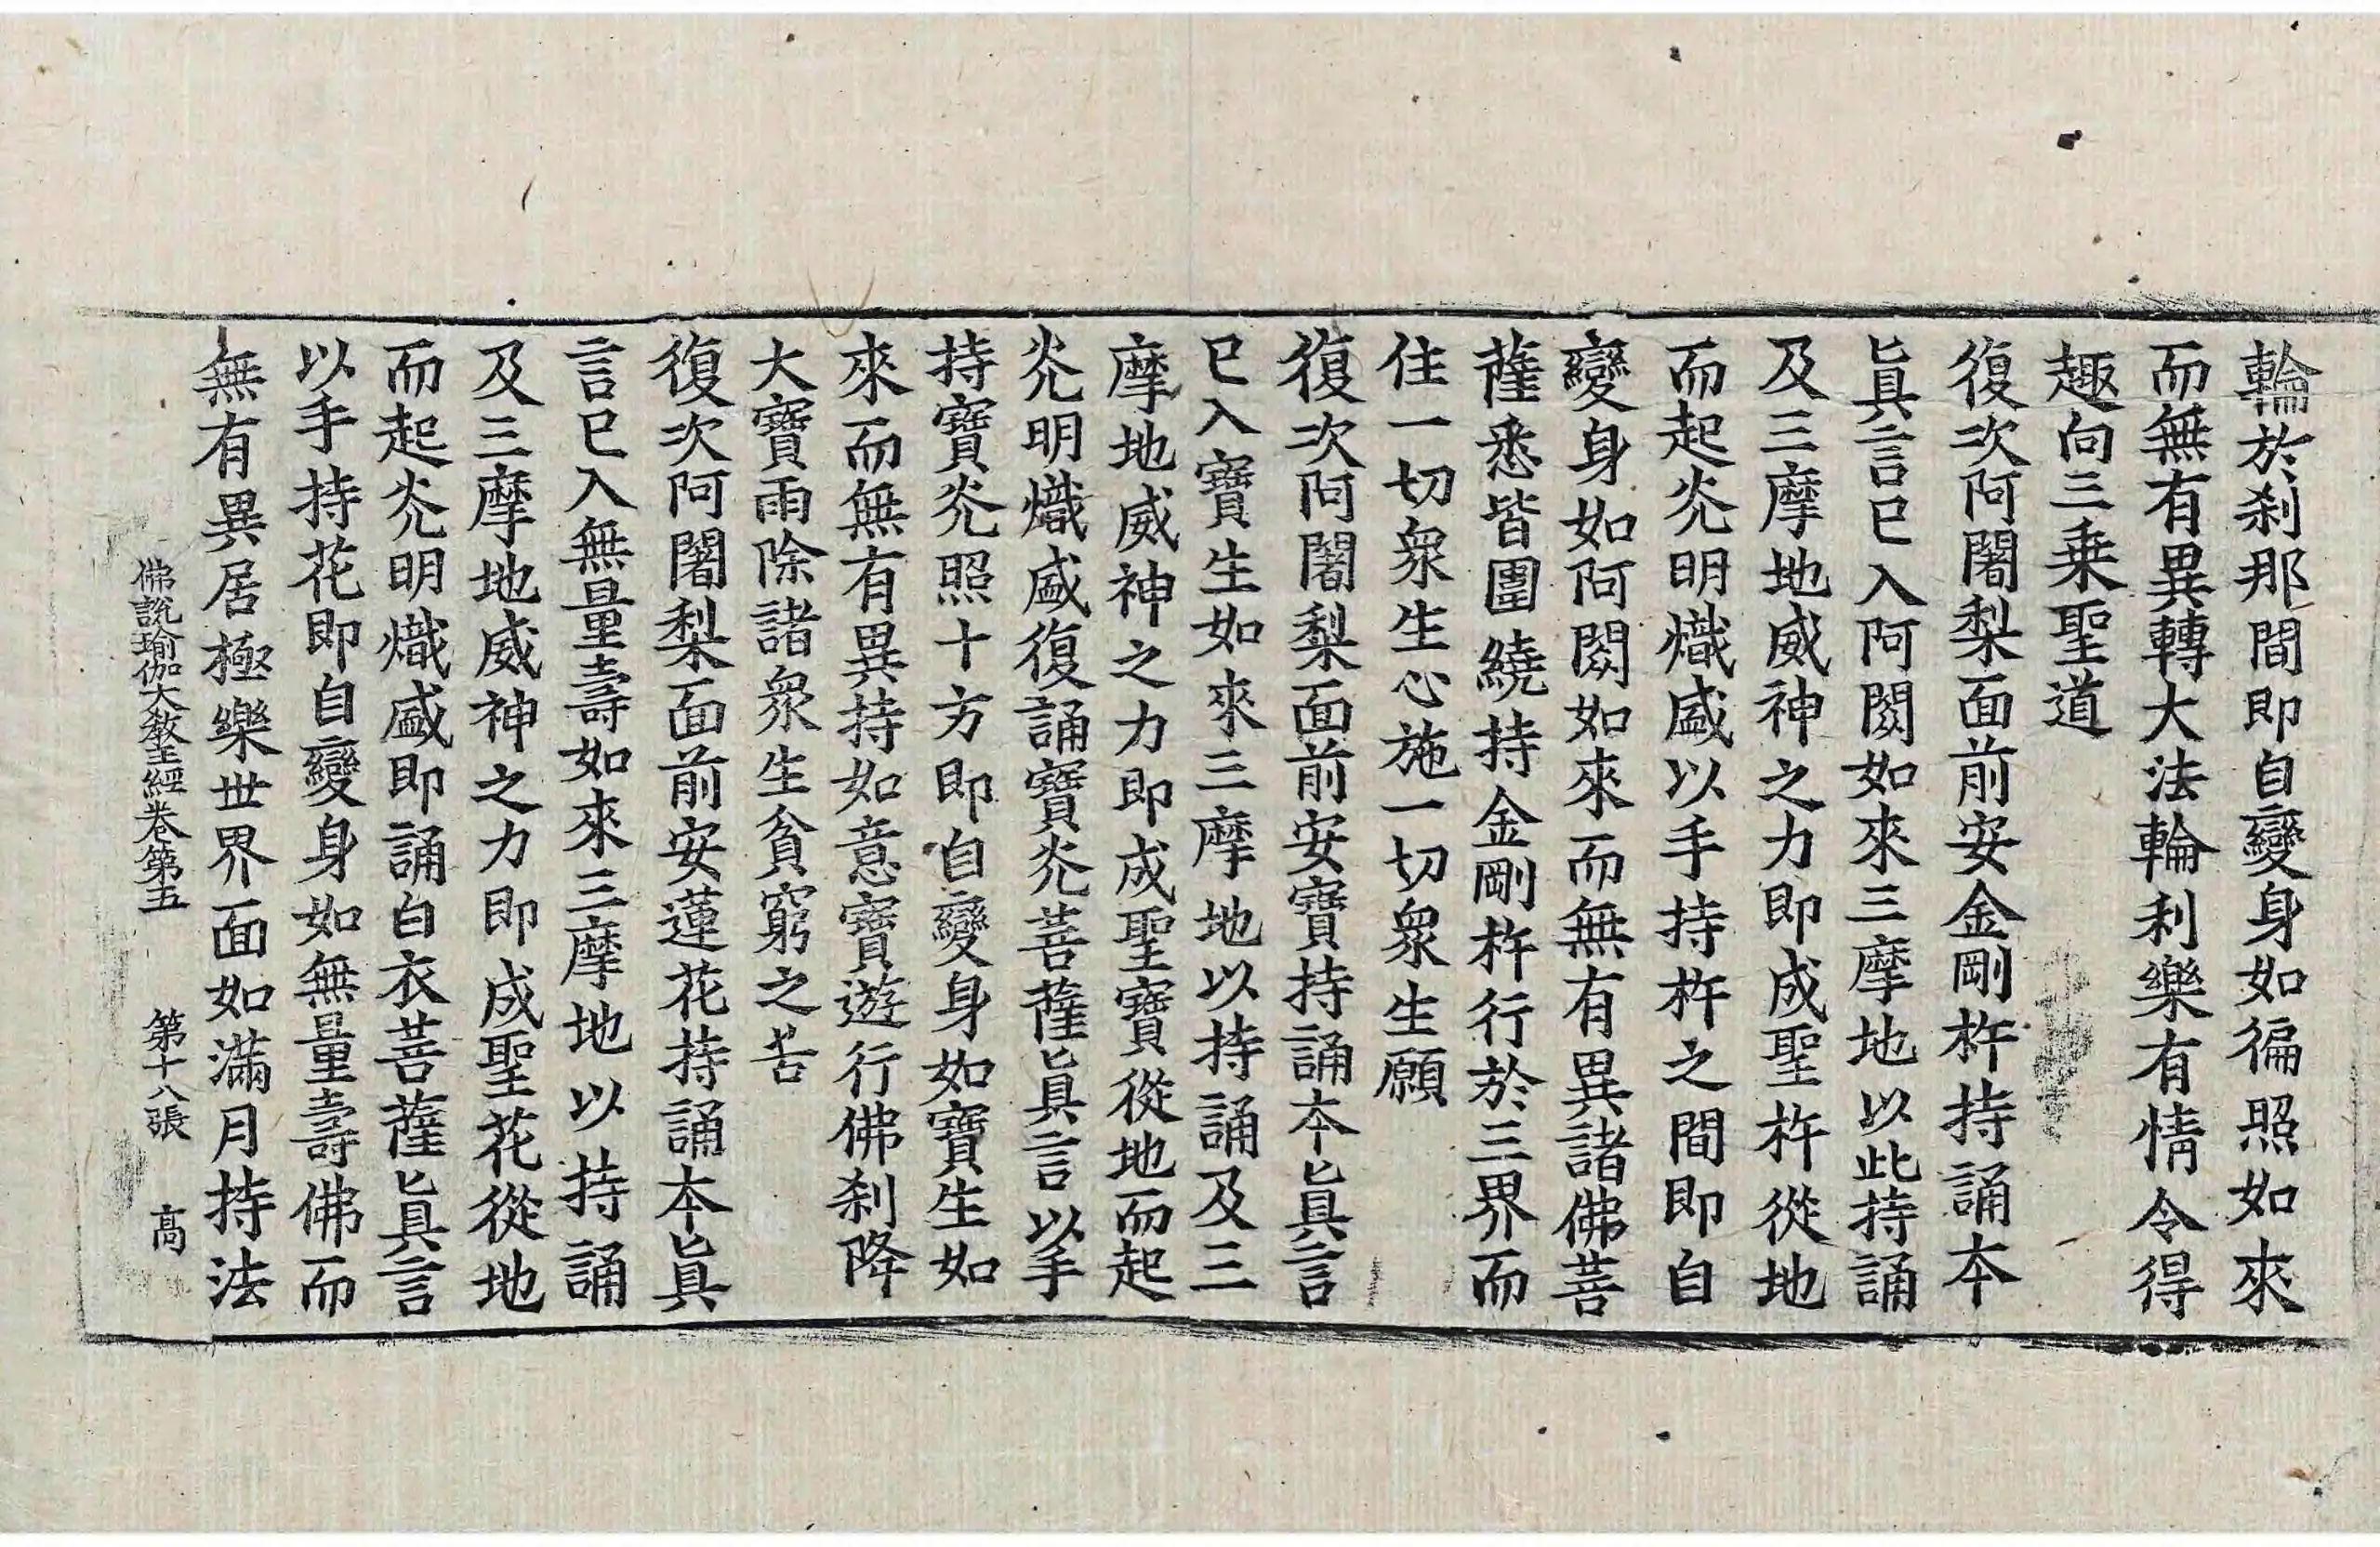 輪於刹那間即自變身如徧照如來
而無有異轉大法輪利樂有情令得
趣向三乗聖道
復次阿闍梨面前安金剛杵持誦本
眞言已入阿閦如來三摩地以此持誦
及三摩地威神之力即成聖杵從地
而起灮明熾盛以手持杵之間即自
變身如阿閦如來而無有異諸佛菩
薩悉皆圍繞持金剛杵行於三界而
住一切衆生心施一切衆生願
復次阿闍梨面前安寶持誦本眞言
已入寶生如來三摩地以持誦及三
摩地威神之力即成聖寶從地而起
灮明熾盛復誦寶灮菩薩眞言以手
持寶灮照十方即自變身如寶生如
來而無有異持如意寶遊行佛刹降
大寶雨除諸衆生貧窮之苦
復次阿闍梨面前安蓮花持誦本眞
言已入無量壽如來三摩地以持誦
及三摩地威神之力即成聖花從地
而起灮明熾盛即誦白衣菩薩眞言
以手持花即自變身如無量壽佛而
無有異居極樂世界面如滿月持法
佛說瑜伽大敎王經卷第五 第十八張 高